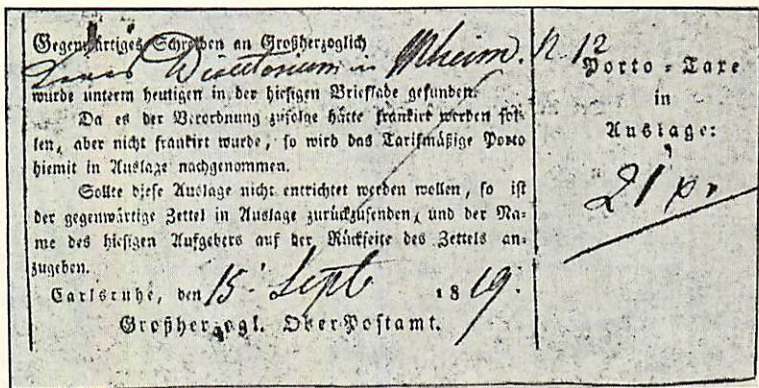 Gegenwärtiges Schreiben an Großherzoglich
Directorium in Mheim. N. 12
wurde unterm heutigen in der hiesigen Brieflade gefunden.
Da es der Verordnung zufolge hätte frankirt werden sol-
len, aber nicht frankirt wurde, so wird das Tarifmäßige Porto
hiemit in Auslage nachgenommen.
Sollte diese Auslage nicht entrichtet werden wollen, so ist
der gegenwärtige Zettel in Auslage zurückzusenden, und der Na-
me des hiesigen Aufgebers auf der Rückseite des Zettels an-
zugeben.
Carlsruhe, den 15. Sept 1819.
Großherzogl. OberPostamt.
Porto-Taxe
in
Auslage:
21 xr